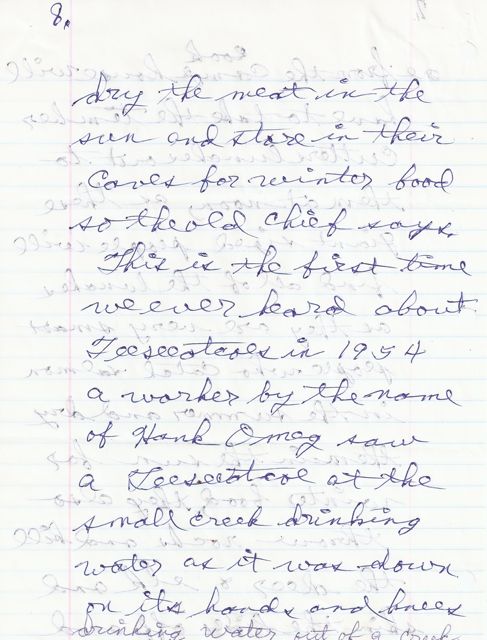 8.
dry the meat in the
sun and store in their
Caves for winter food
so the old chief says.
This is the first time
we ever heard about
in 1954
a worker by the name
of Hank Omag saw
a at the
small creek drinking
water as it was down
on its hands and knees
drinking water out of a creek